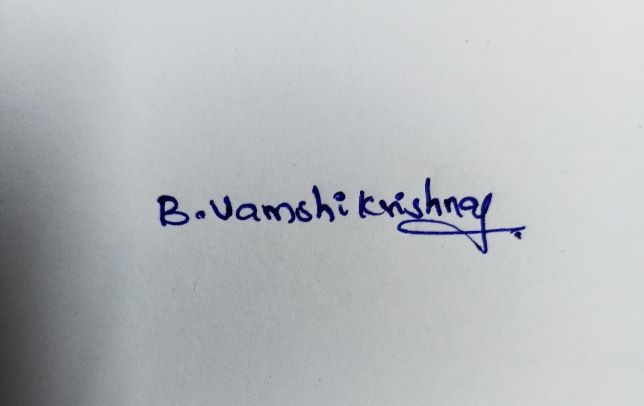 B. Vamshi Krishna